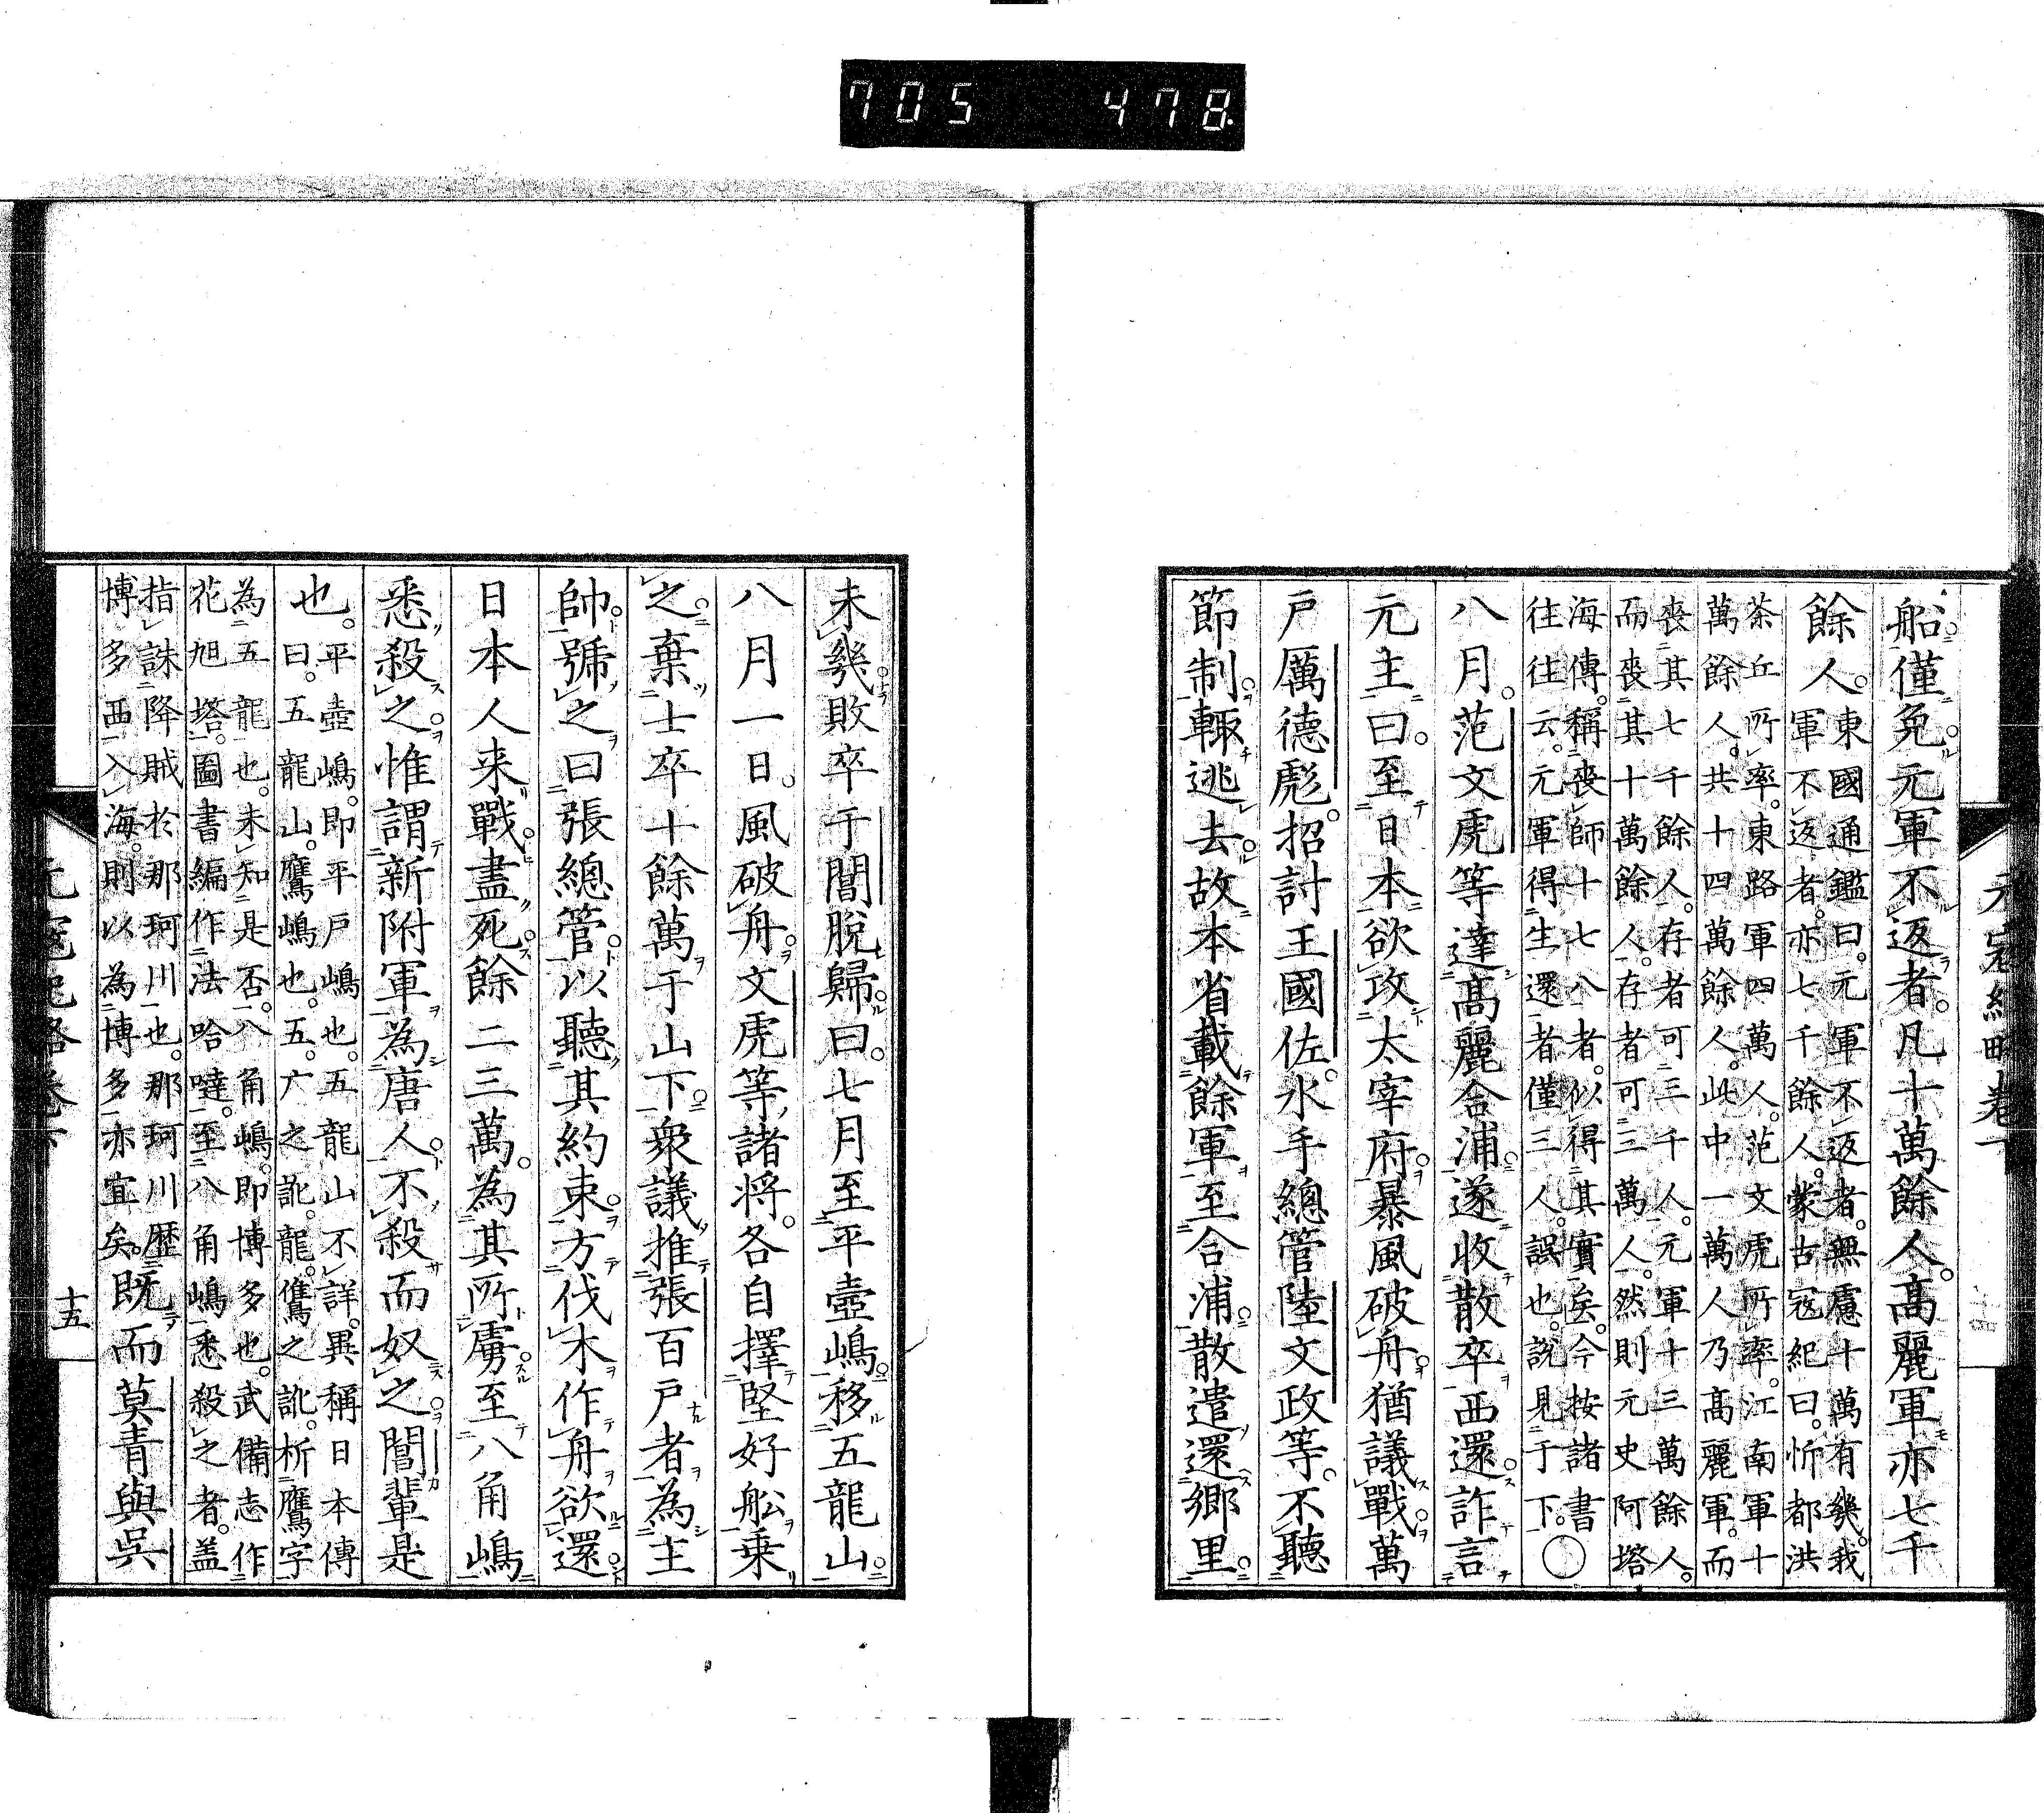 705 478
船僅免元軍不返者凡十萬餘人高麗軍亦七千
餘人。東國通鑑曰元軍不返者無慮十萬有幾我
軍不返者亦七千餘人蒙古寇紀曰忻都洪
茶丘所率東路軍四萬人范文虎所率江南軍十
萬餘人共十四萬餘人此中一萬人乃高麗軍而
喪其七千餘人存者可三千人元軍十三萬餘人
而喪其十萬餘人存者可三萬人然則元史阿塔
海傳稱喪師十七八者似得其實矣今按諸書
往往云元軍得生還者僅三人誤也說見于下○
八月范文虎等達高麗合浦遂收散卒西還詐言
元主曰至日本欲攻太宰府暴風破舟猶議戰萬
戶厲德彪招討王國佐水手總管陸文政等不聽
節制輙逃去故本省載餘軍至合浦散遣還鄉里
未幾敗卒于閶脫歸曰七月至平壺嶋移五龍山
八月一日風破舟文虎等諸將各自擇堅好舩乗
之棄士卒十餘萬于山下衆議推張百戶者為主
帥號之曰張總管以聽其約束方伐木作舟欲還
日本人来戰盡死餘二三萬為其所虜至八角嶋
悉殺之惟謂新附軍為唐人不殺而奴之閶輩是
也。平壺嶋即平戶嶋也五龍山不詳異稱日本傳
曰五龍山鷹嶋也五广之訛龍㒞之訛析鷹字
為五龍也未知是否八角嶋即博多也武備志作
花旭塔圖書編作法哈噠至八角嶋悉殺之者盖
指誅降賊於那珂川也那珂川歴
博多西入海則以為博多亦宜矣既而莫青與吳
元寇紀略卷下
十五